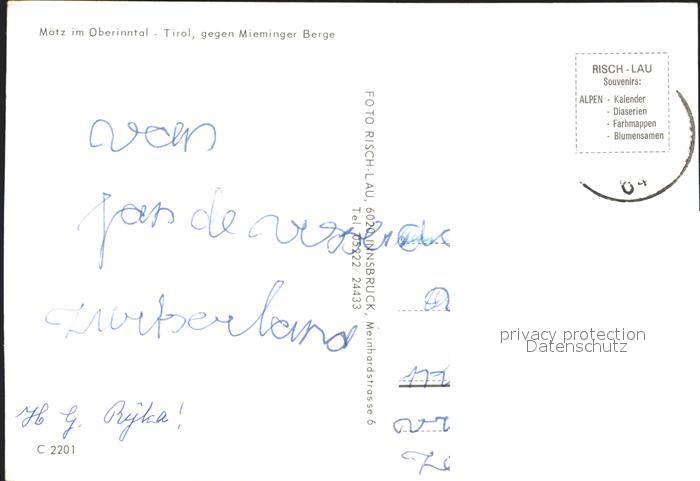 Mötz im Oberinntal - Tirol, gegen Mieminger Berge
RISCH - LAU
Souvenirs:
ALPEN - Kalender
- Diaserien
- Farbmappen
- Blumensamen
04
van
Jan de
zwitserland
H G. Rijka!
C 2201
FOTO RISCH-LAU, 6020 INNSBRUCK, Meinhardstrasse 6
Tel. 05222/24433
privacy protection
Datenschutz